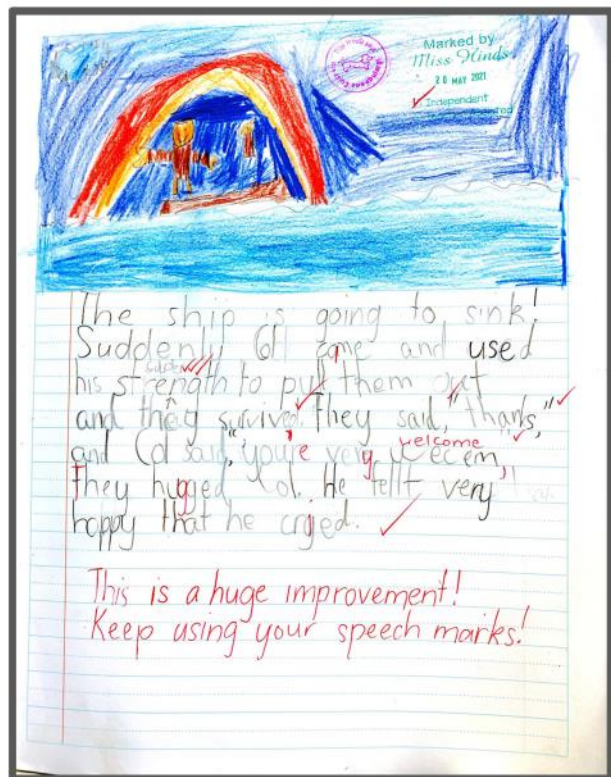 Marked by
Miss Hinds
20 MAY 2021
Independent
The ship is going to sink!
Suddenly Col came and used
super
his strength to pull them out
and they survived. They said, "thanks,"
and Col said, "you're very welcome
They hugged Col. He fellt very
happy that he cryed.
This is a huge improvement!
Keep using your speech marks!